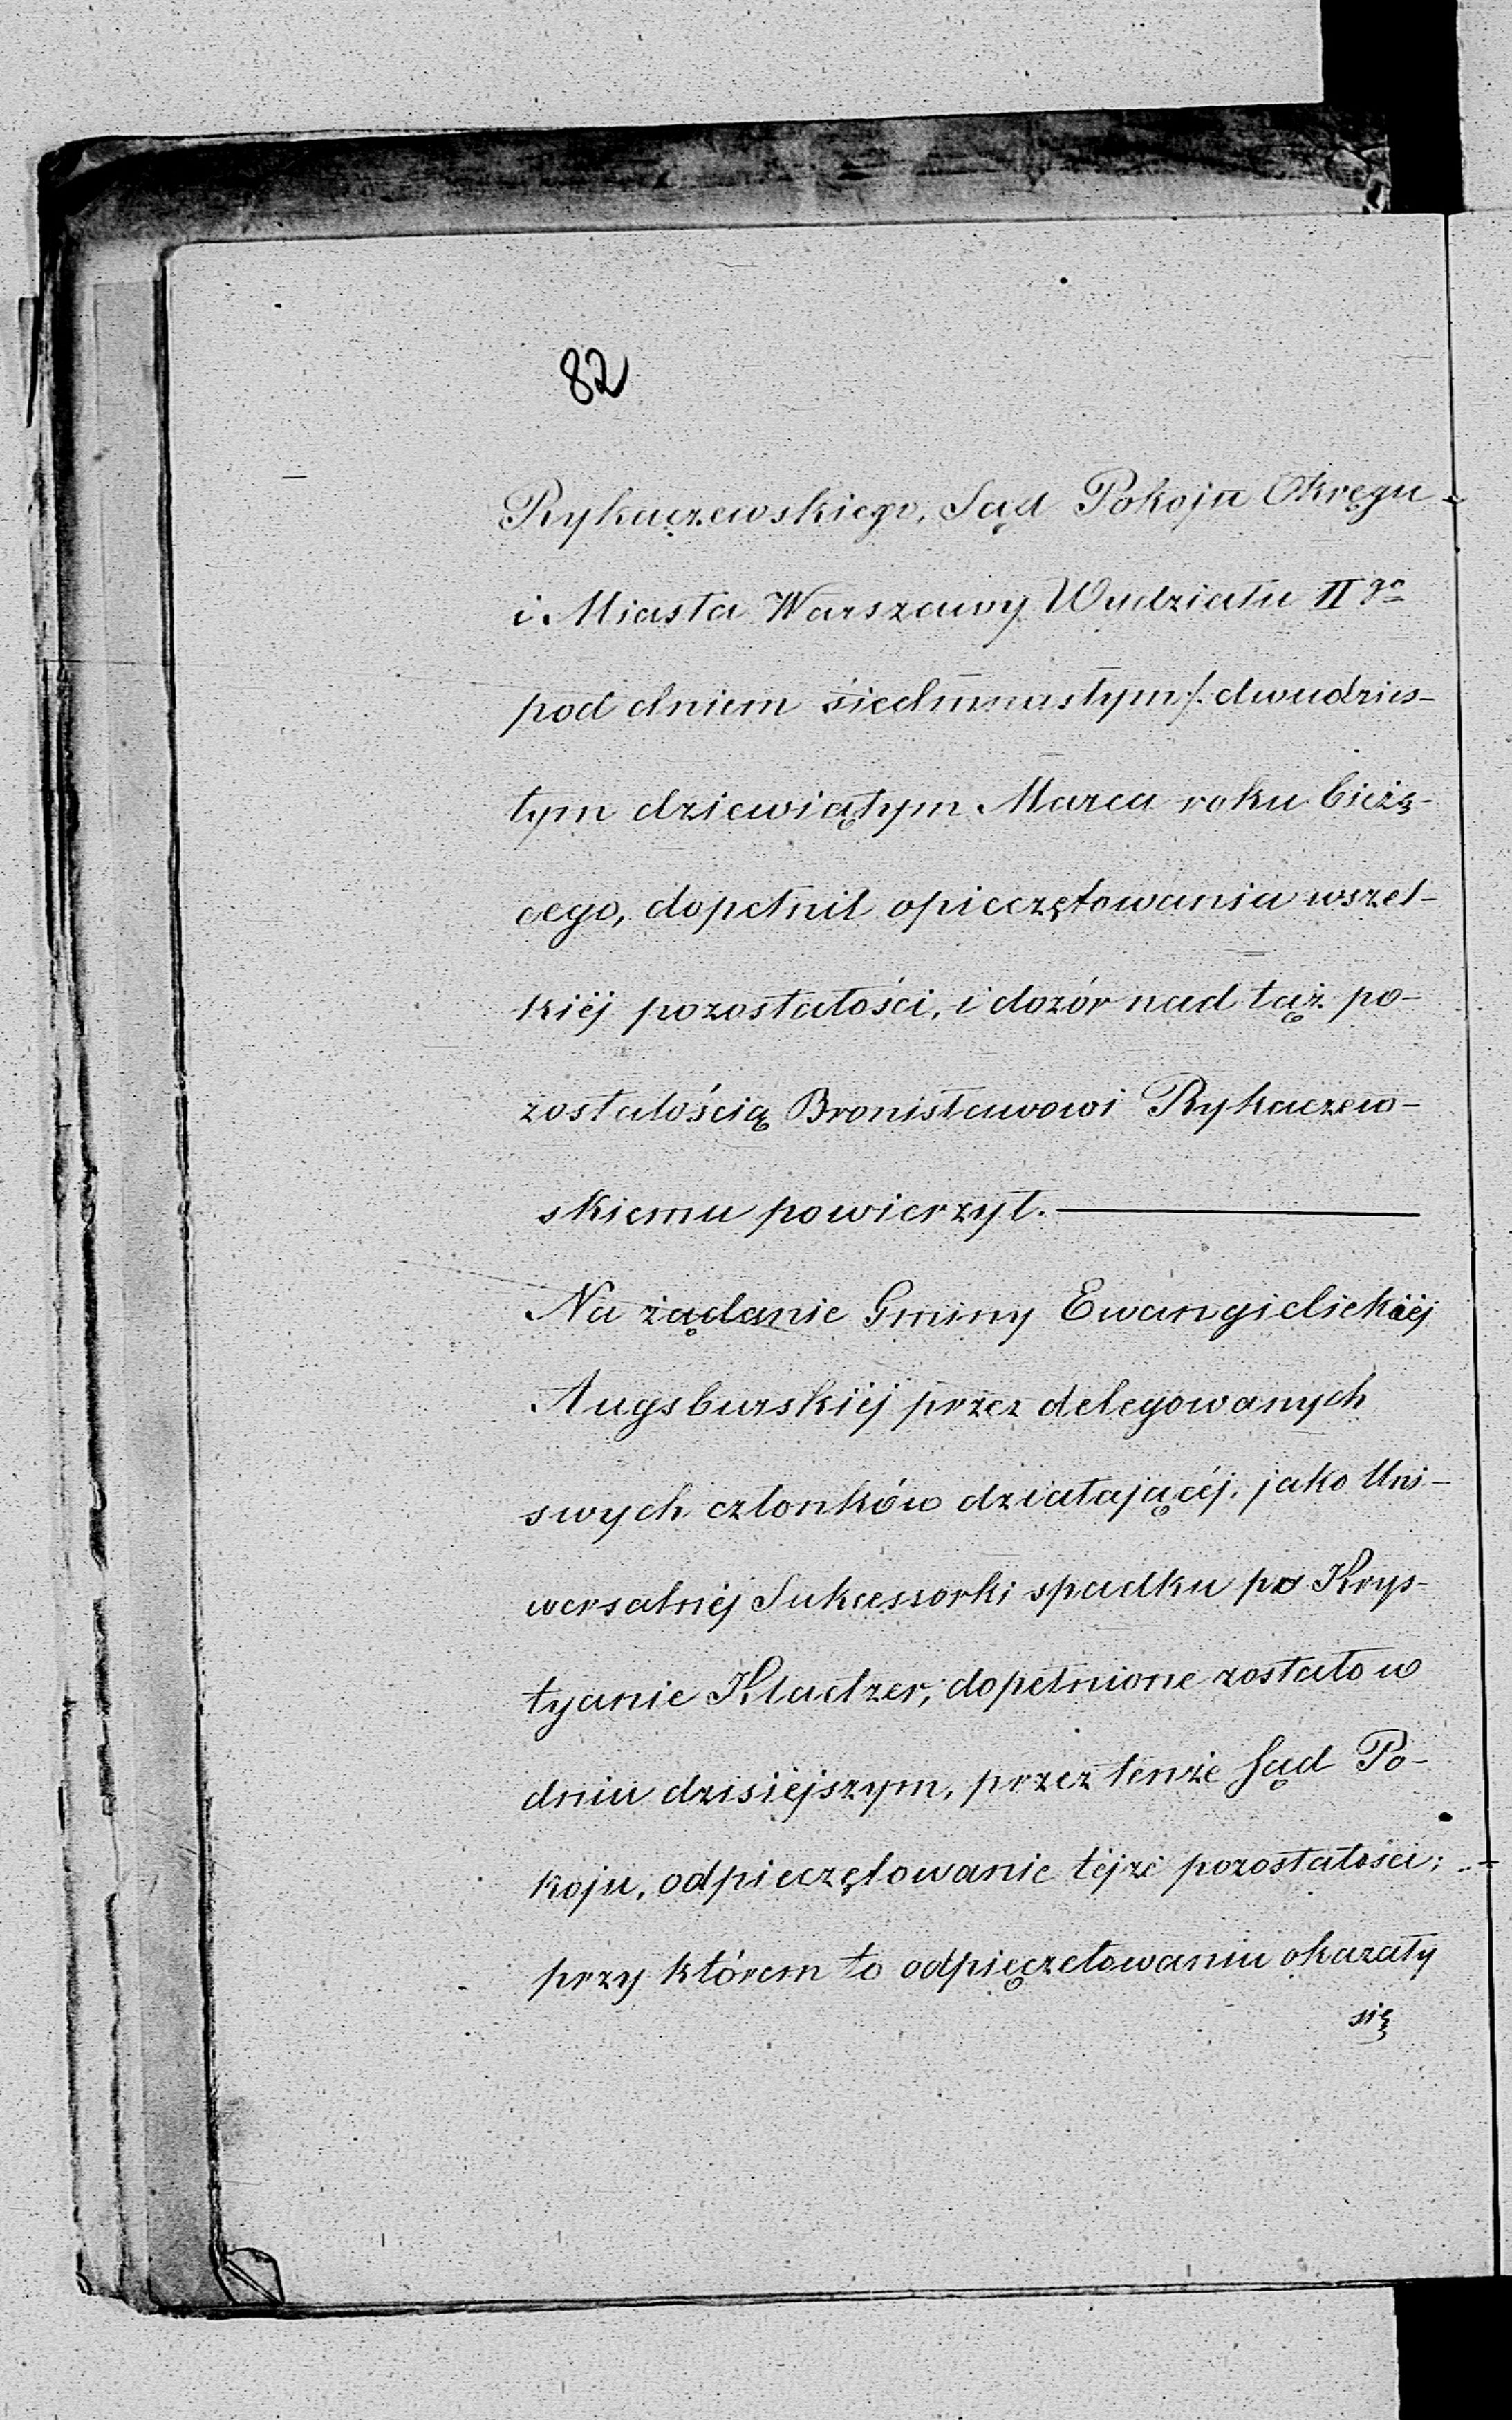 82
Rykaczewskiego, Sąd Pokoju Okręgu
i Miasta Warszawy Wydziału II go
pod dniem siedmnastym /. dwudzies-
tym dziewiątym Marca roku bieżą-
cego, dopełnił opieczętowania wszel-
kiéj pozostałości, i dozór nad tąż po-
zostałością Bronisławowi Rykaczew-
skiemu powierzył.
Na żądanie Gminy Ewangielickiéj
Augsburskiéj przez delegowanych
swych członków działającéj, jako Uni-
wersalnéj Sukcessorki spadku po Krys-
tyanie Kladzer, dopełnione zostało w
dniu dzisiéjszym, przez tenże Sąd Po-
koju, odpieczętowanie téjże pozostałości;
przy którem to odpięczetowaniu okazały
się